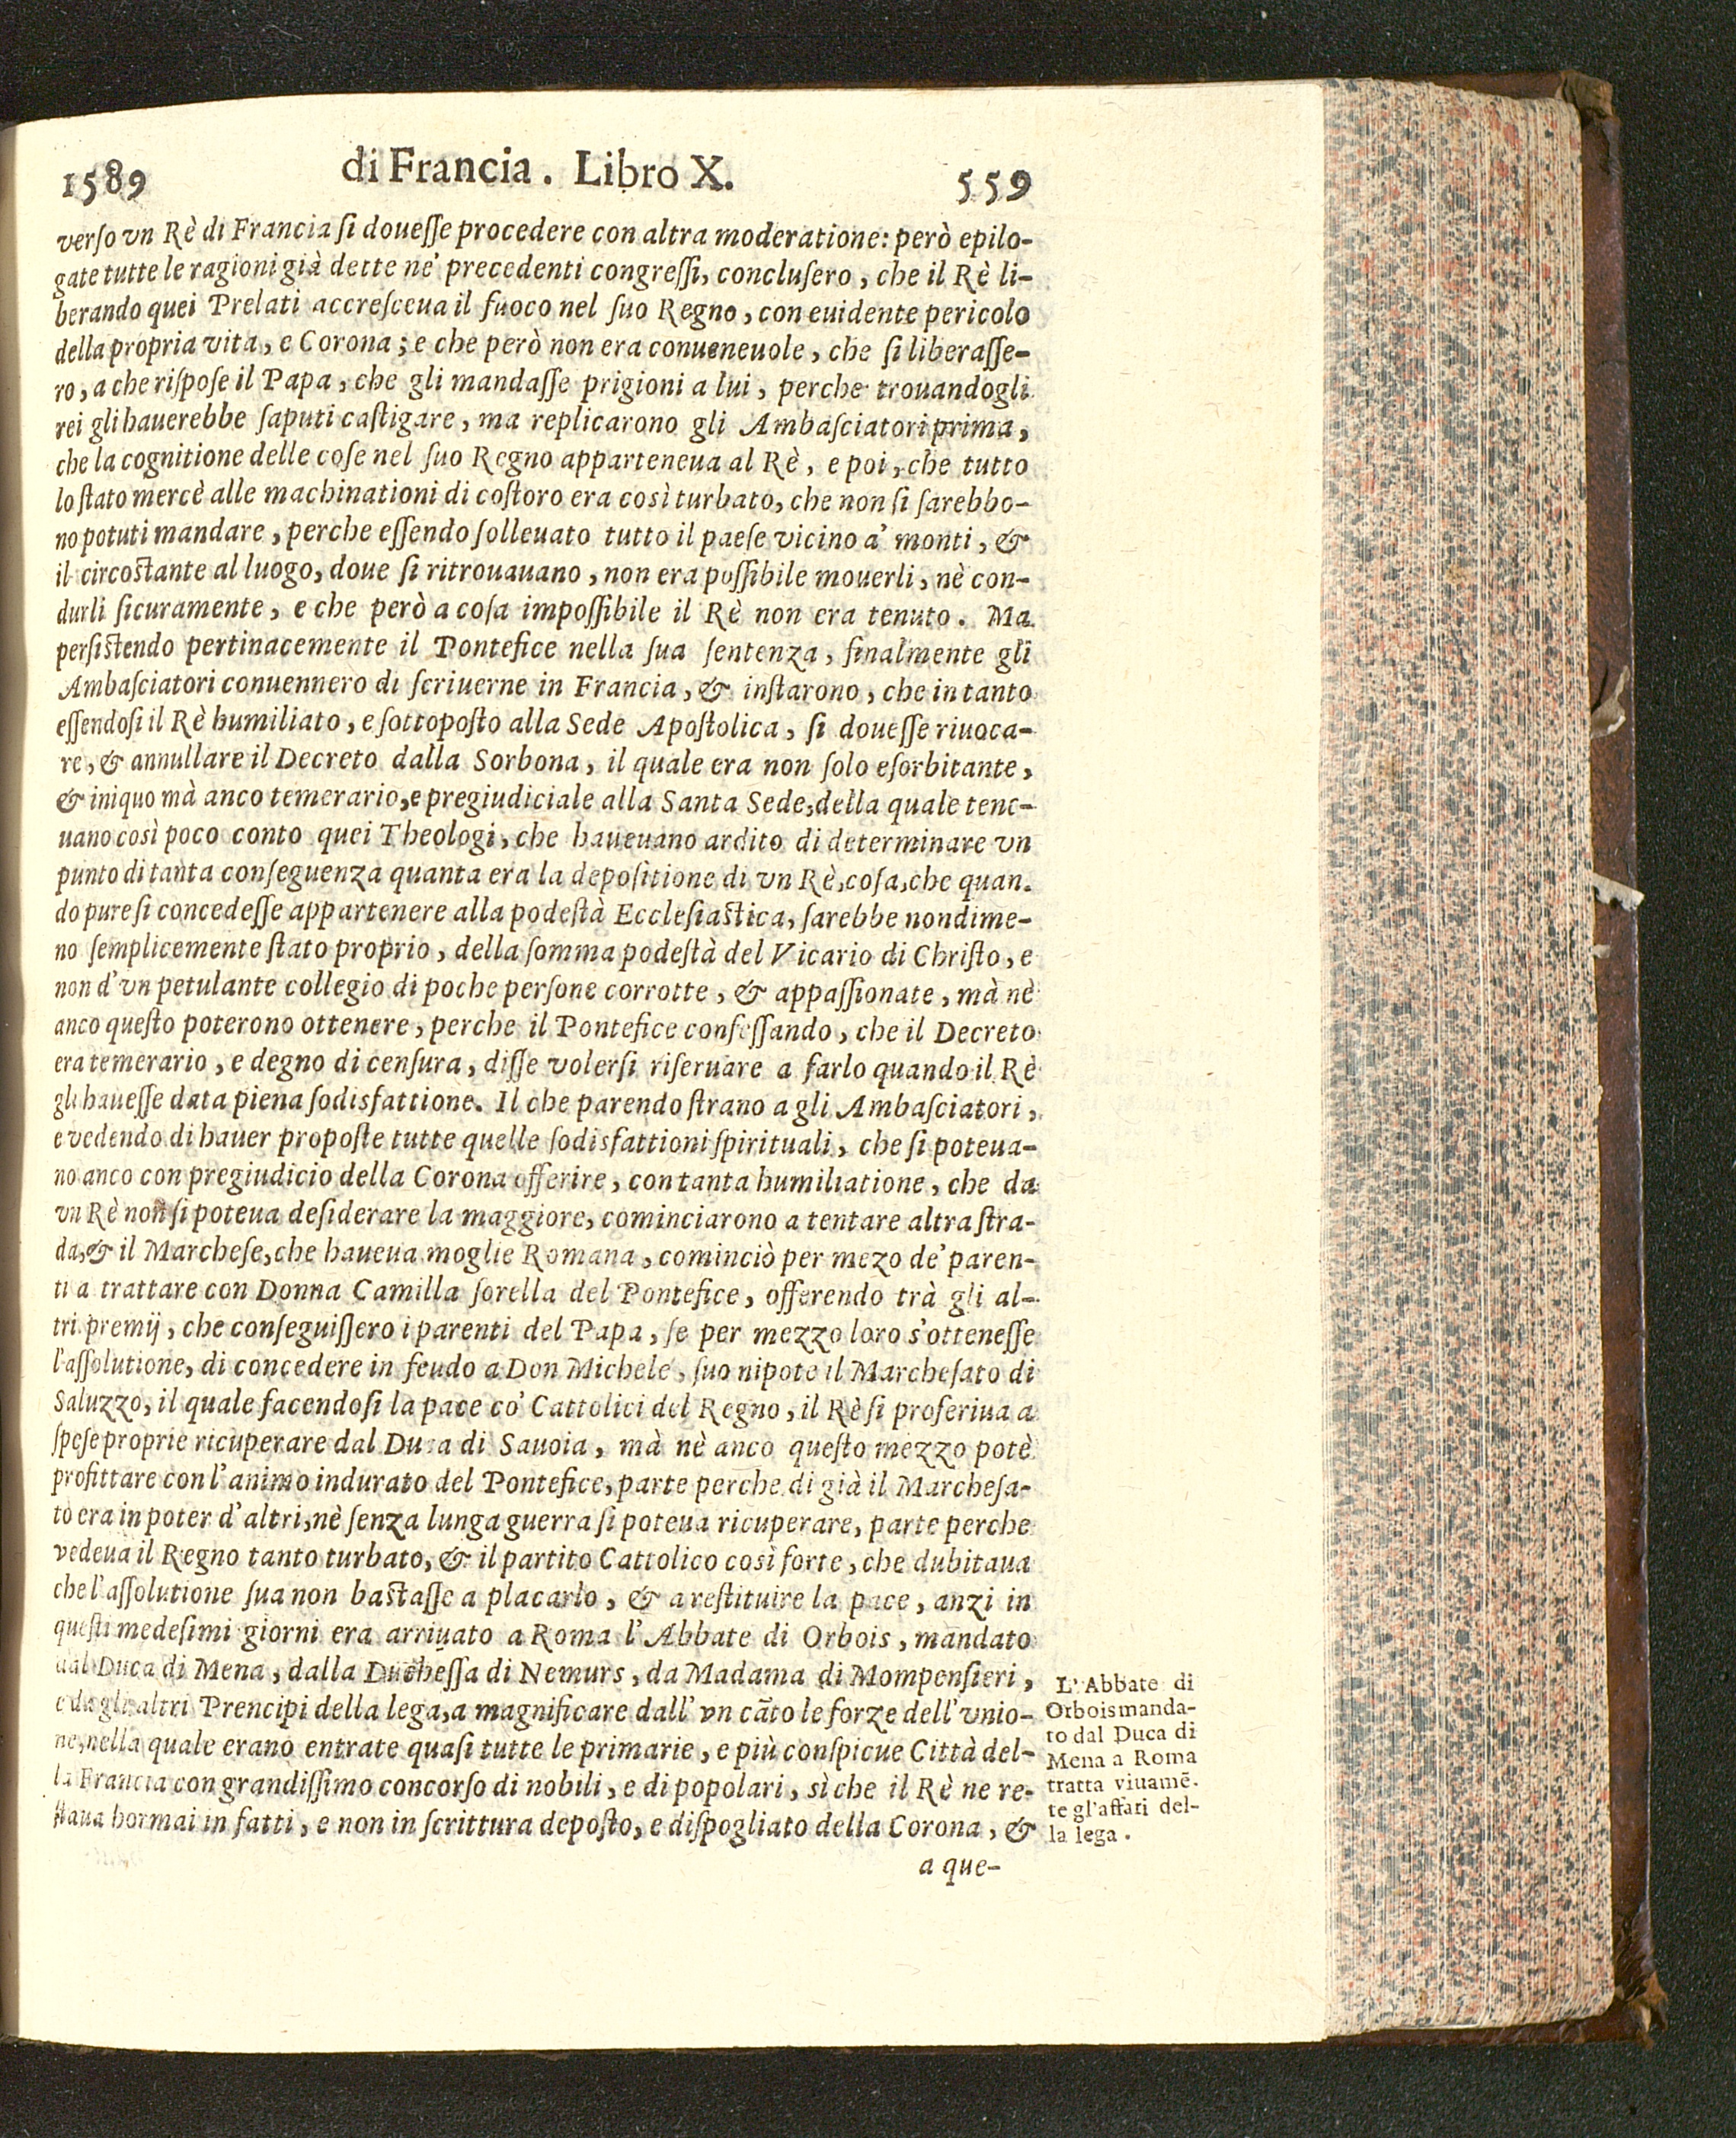 1589 di Francia. Libro X. 559
verſo vn Rè di Francia ſi doueſſe procedere con altra moderatione: però epilo-
gate tutte le ragioni già dette ne' precedenti congreſſi, concluſero, che il Rè li-
berando quei Prelati accreſceua il fuoco nel ſuo Regno, con euidente pericolo
della propria vita, e Corona; e che però non era conueneuole, che ſi liberaſſe-
ro, a che riſpoſe il Papa, che gli mandaſſe prigioni a lui, perche trouandogli
rei gli hauerebbe ſaputi caſtigare, ma replicarono gli Ambaſciatori prima,
che la cognitione delle coſe nel ſuo Regno apparteneua al Rè, e poi, che tutto
lo ſtato mercè alle machinationi di coſtoro era così turbato, che non ſi ſarebbo-
no potuti mandare, perche eſſendo ſolleuato tutto il paeſe vicino a' monti, &
il circoſtante al luogo, doue ſi ritrouauano, non era poſſibile mouerli, nè con-
durli ſicuramente, e che però a coſa impoſſibile il Rè non era tenuto. Ma
perſiſtendo pertinacemente il Pontefice nella ſua ſentenza, finalmente gli
Ambaſciatori conuennero di ſcriuerne in Francia, & inſtarono, che in tanto
eſſendoſi il Rè humiliato, e ſottopoſto alla Sede Apoſtolica, ſi doueſſe riuoca-
re, & annullare il Decreto dalla Sorbona, il quale era non ſolo eſorbitante,
& iniquo mà anco temerario, e pregiudiciale alla Santa Sede, della quale tene-
uano così poco conto quei Theologi, che haueuano ardito di determinare vn
punto di tanta conſeguenza quanta era la depoſitione di vn Rè, coſa, che quan.
do pure ſi concedeſſe appartenere alla podeſtà Eccleſiaſtica, ſarebbe nondime-
no ſemplicemente ſtato proprio, della ſomma podeſtà del Vicario di Chriſto, e
non d'vn petulante collegio di poche perſone corrotte, & appaſſionate, mà nè
anco queſto poterono ottenere, perche il Pontefice confeſſando, che il Decreto
era temerario, e degno di cenſura, diſſe volerſi riſeruare a farlo quando il Rè
gli haueſſe data piena ſodisfattione. Il che parendo ſtrano a gli Ambaſciatori,
e vedendo di hauer propoſte tutte quelle ſodisfattioni ſpirituali, che ſi poteua-
no anco con pregiudicio della Corona offerire, con tanta humiliatione, che da
vn Rè non ſi poteua deſiderare la maggiore, cominciarono a tentare altra ſtra-
da, & il Marcheſe, che haueua moglie Romana, cominciò per mezo de' paren-
ti a trattare con Donna Camilla ſorella del Pontefice, offerendo trà gli al-
tri premij, che conſeguiſſero i parenti del Papa, ſe per mezzo loro s'otteneſſe
l'aſſolutione, di concedere in feudo a Don Michele, ſuo nipote il Marcheſato di
Saluzzo, il quale facendoſi la pace co' Cattolici del Regno, il Rè ſi proferiua a
ſpeſe proprie ricuperare dal Duca di Sauoia, mà nè anco queſto mezzo potè
profittare con l'animo indurato del Pontefice, parte perche di già il Marcheſa-
to era in poter d'altri, nè ſenza lunga guerra ſi poteua ricuperare, parte perche
vedeua il Regno tanto turbato, & il partito Cattolico così forte, che dubitaua
che l'aſſolutione ſua non baſtaſſe a placarlo, & a reſtituire la pace, anzi in
queſti medeſimi giorni era arriuato a Roma l'Abbate di Orbois, mandato
dal Duca di Mena, dalla Ducheſſa di Nemurs, da Madama di Mompenſieri,
e da gli altri Prencipi della lega, a magnificare dall'vn cãto le forze dell'vnio-
ne, nella quale erano entrate quaſi tutte le primarie, e più conſpicue Città del-
la Francia con grandiſſimo concorſo di nobili, e di popolari, sì che il Rè ne re-
ſtaua hormai in fatti, e non in ſcrittura depoſto, e diſpogliato della Corona, &
a que-
L'Abbate di
Orbois manda-
to dal Duca di
Mena a Roma
tratta viuamẽ-
te gl'affari del-
la lega.